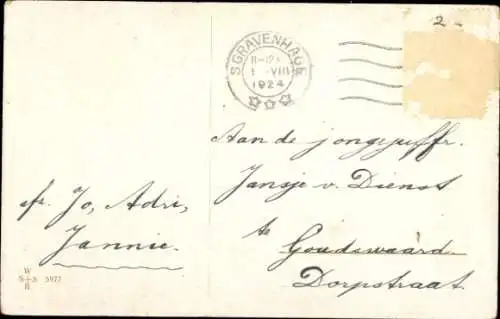 2-
SGRAVENHAGE
VIII
1924
Aan de jongejuffr.
Jansje v. Dienst
te
Goudswaard
Dorpstraat.
fr. Jo, Adri,
Jannie.
W
S+S 5977
B